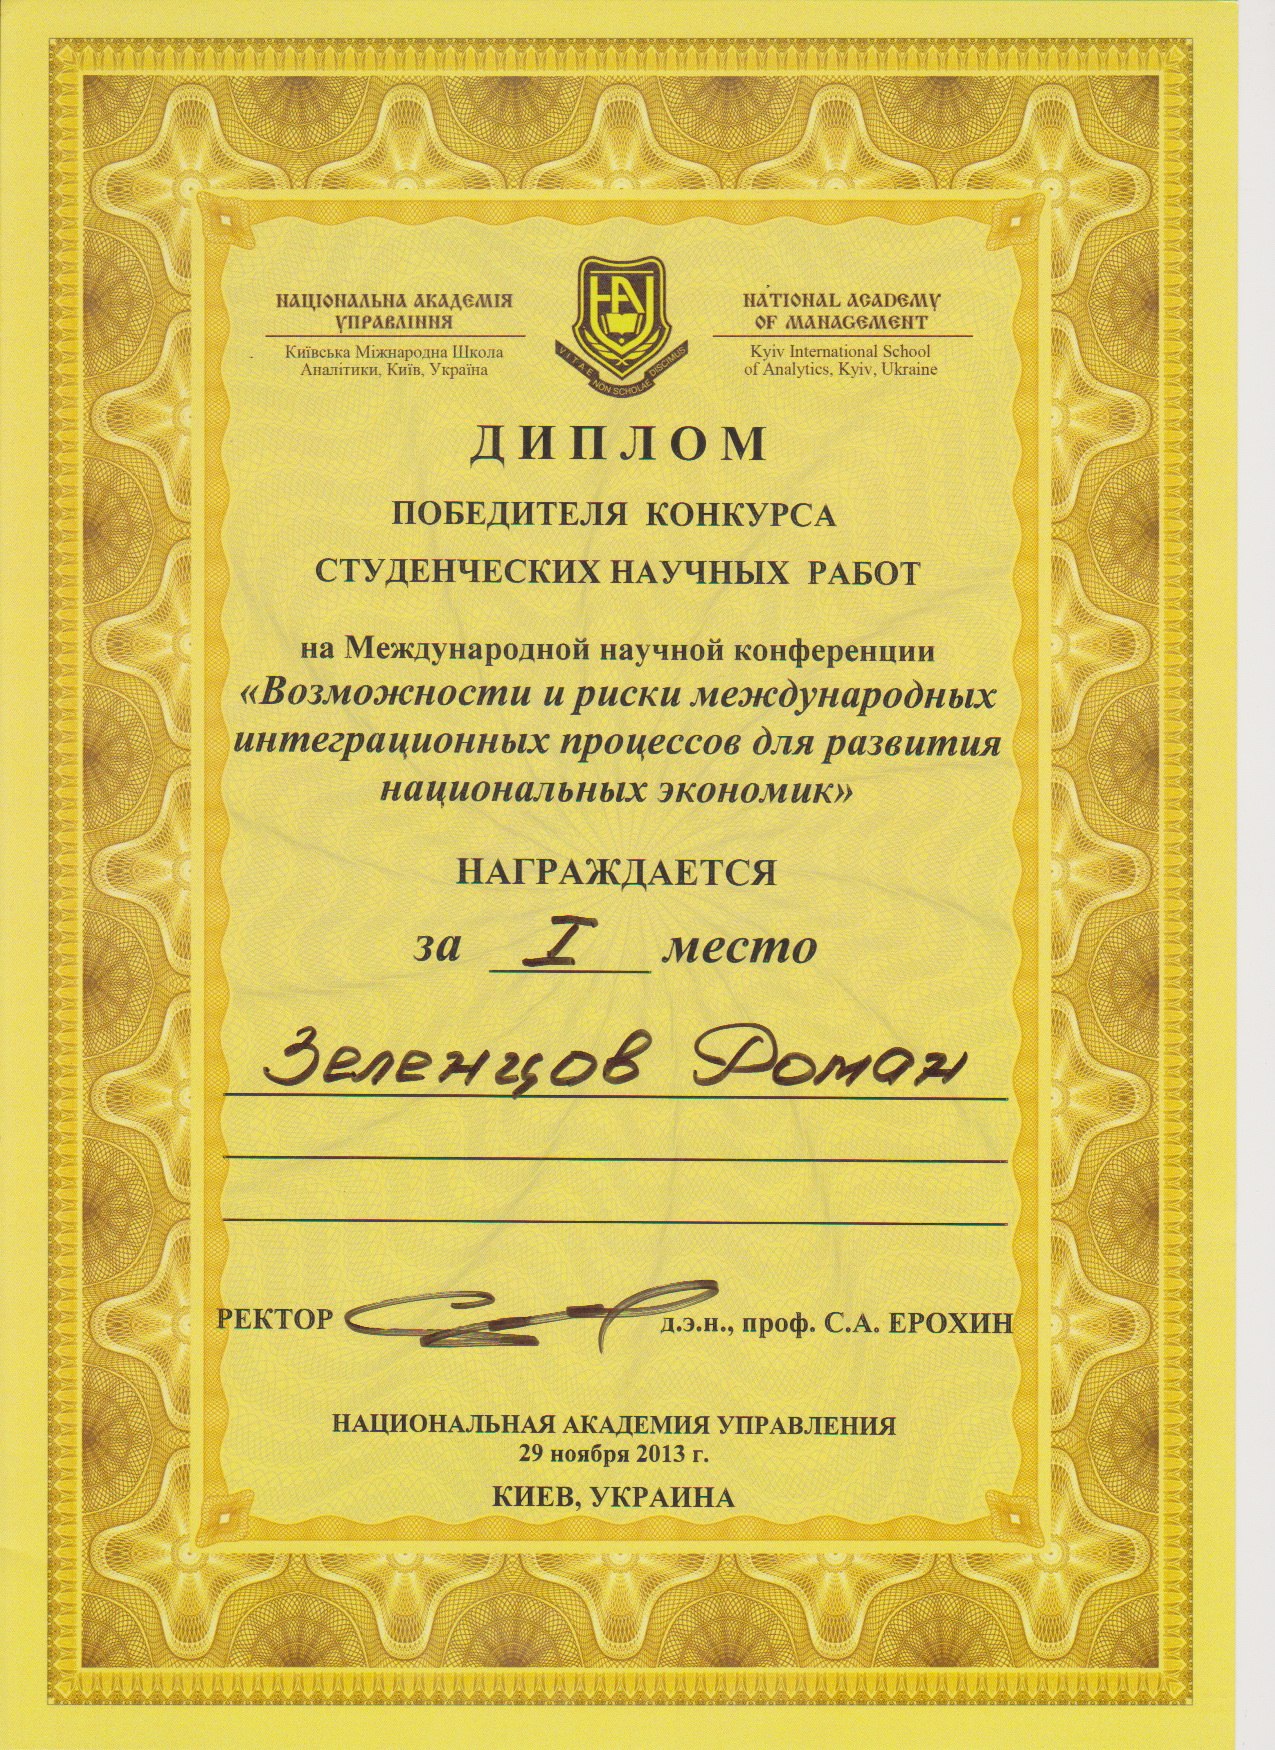 НАЦІОНАЛЬНА АКАДЕМІЯ
УПРАВЛІННЯ
Київська Міжнародна Школа
Аналітики, Київ, Україна
НАУ
VITAE NON SCHOLAE DISCIMUS
NATIONAL ACADEMY
OF MANAGEMENT
Kyiv International School
of Analytics, Kyiv, Ukraine
ДИПЛОМ
ПОБЕДИТЕЛЯ КОНКУРСА
СТУДЕНЧЕСКИХ НАУЧНЫХ РАБОТ
на Международной научной конференции
«Возможности и риски международных
интеграционных процессов для развития
национальных экономик»
НАГРАЖДАЕТСЯ
за I место
Зеленцов Роман
РЕКТОР д.э.н., проф. С.А. ЕРОХИН
НАЦИОНАЛЬНАЯ АКАДЕМИЯ УПРАВЛЕНИЯ
29 ноября 2013 г.
КИЕВ, УКРАИНА